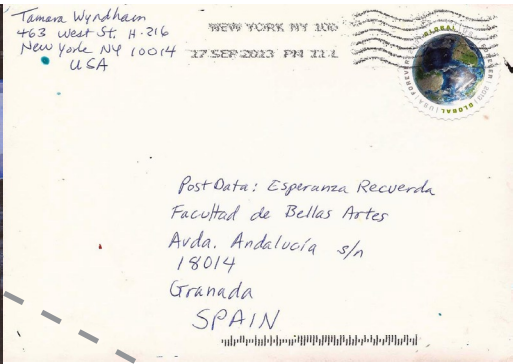 Tamara Wyndham
463 West St. H-216
New York NY 10014
USA
NEW YORK NY 100
17 SEP 2013 PM 11 L
GLOBAL
FOREVER
USA
2013
GLOBAL
PostData: Esperanza Recuerda
Facultad de Bellas Artes
Avda. Andalucía s/n
18014
Granada
SPAIN